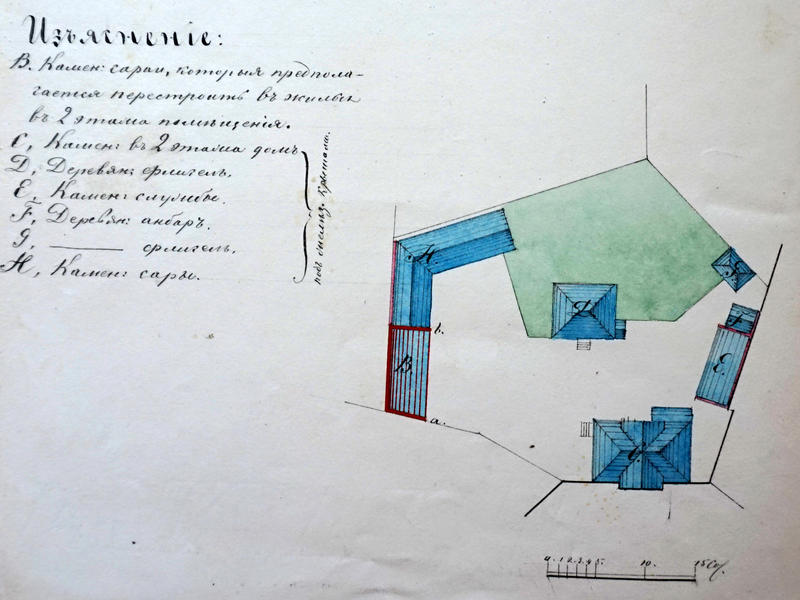 Изъясненіе:
B. Камен: сараи, которыя предпола-
гается перестроить въ жилыя
въ 2 этажа помѣщенія.
C, Камен: въ 2 этажа домъ
D, Деревян: флигель.
E, Камен: службы.
F, Деревян: анбаръ.
G, ——— флигель.
H, Камен: сараи.
подъ желѣз. крышами.
H
G
D
F
b.
B.
E.
a.
C.
0. 1 2 3 4 5. 10. 15 Саж.